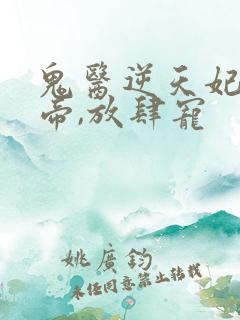 鬼醫逆天妃
帝,放肆寵
姚廣鈞
未经同意禁止转载